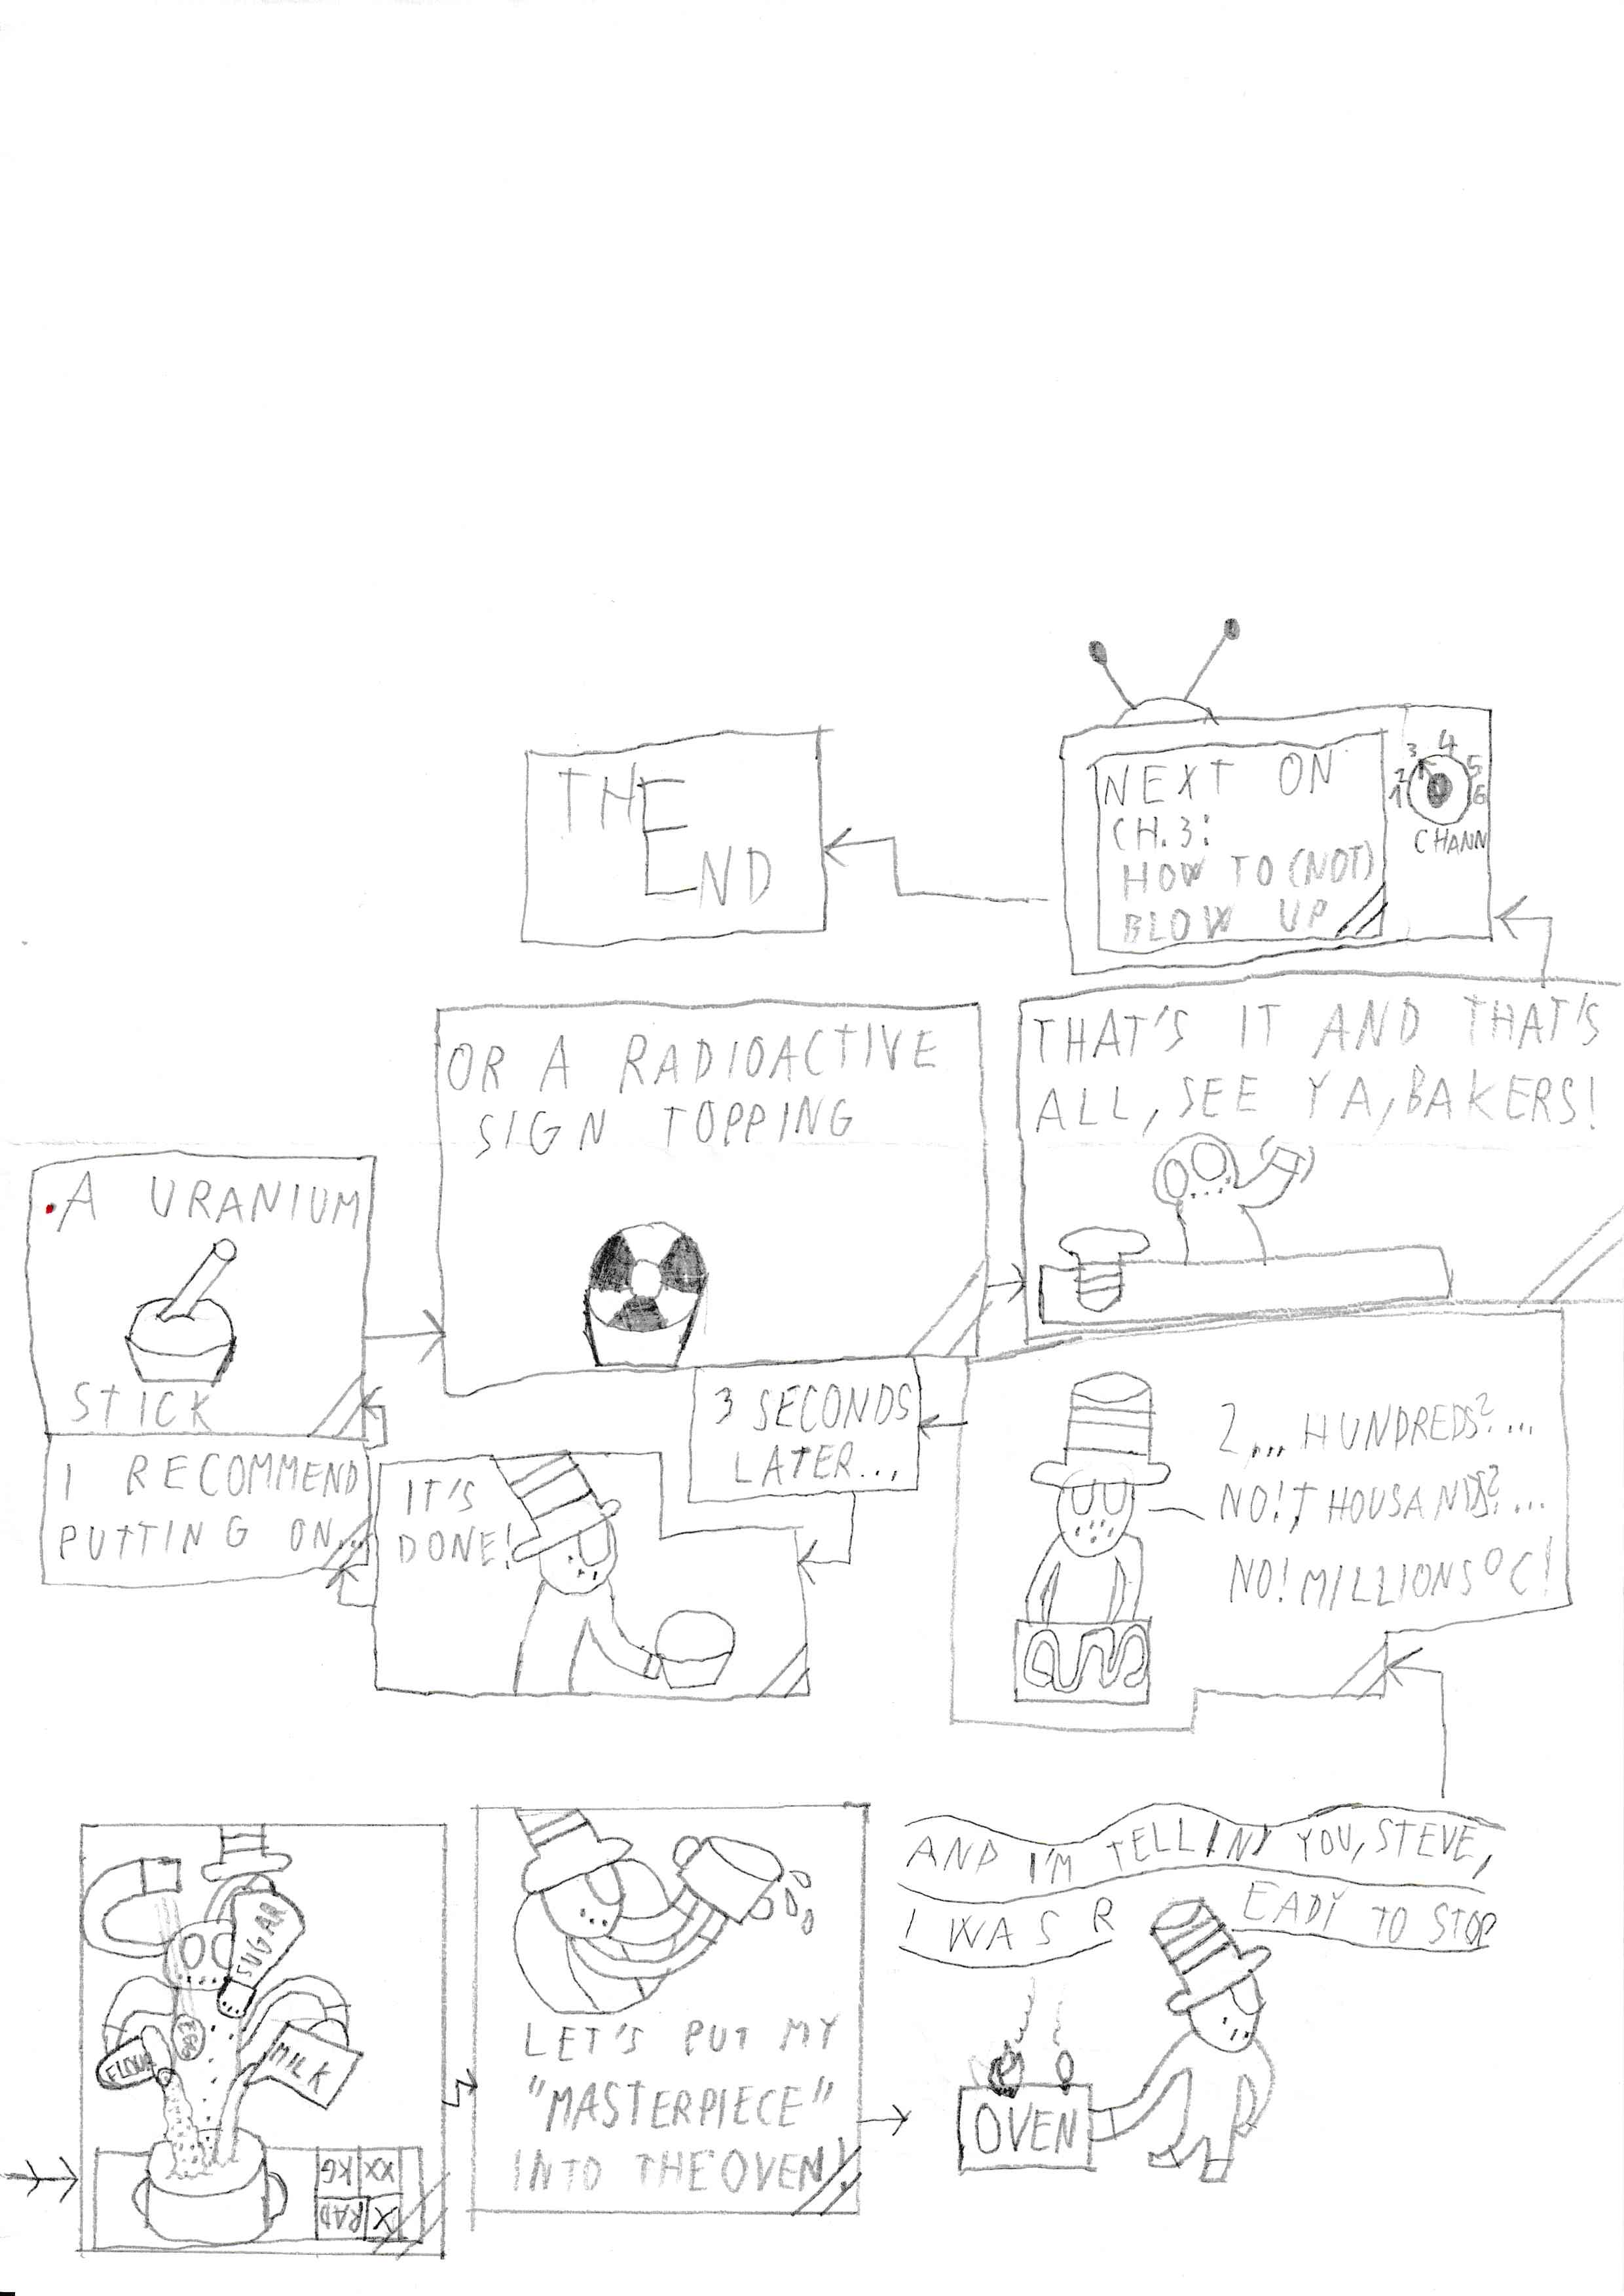 FLOUR
EGG
SUGAR
MILK
XX KG
X RAD
LET'S PUT MY
"MASTERPIECE"
INTO THE OVEN
AND I'M TELLIN' YOU, STEVE,
I WAS READY TO STOP
OVEN
2... HUNDREDS?...
NO! THOUSANDS?...
NO! MILLIONS°C!
3 SECONDS
LATER...
IT'S
DONE!
I RECOMMEND
PUTTING ON...
A URANIUM
STICK
OR A RADIOACTIVE
SIGN TOPPING
THAT'S IT AND THAT'S
ALL, SEE YA, BAKERS!
NEXT ON
CH.3:
HOW TO (NOT)
BLOW UP
1 2 3 4 5 6
CHANN
THE
END